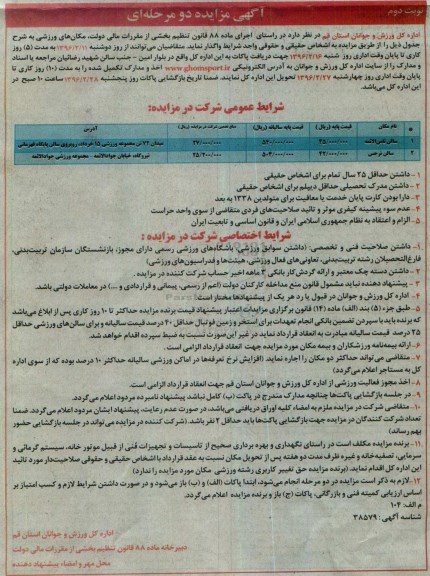 نوبت دوم
آگهی مزایده دو مرحله‌ای
اداره کل ورزش و جوانان استان قم در نظر دارد در راستای اجرای ماده ۸۸ قانون تنظیم بخشی از مقررات مالی دولت، مکان‌های ورزشی به شرح
جدول ذیل را از طریق مزایده به اشخاص حقیقی و حقوقی واجد شرایط واگذار نماید. متقاضیان می‌توانند از روز دوشنبه ۱۳۹۶/۲/۱۱ به مدت (۵) روز
کاری تا پایان وقت اداری روز شنبه ۱۳۹۶/۲/۱۶ جهت دریافت پاکات به این اداره کل واقع در بلوار امین - جنب سالن شهید رضائیان مراجعه یا اسناد
و مدارک را از سایت اداره کل ورزش و جوانان به آدرس الکترونیکی www.ghomsport.ir اخذ و مدارک تکمیل شده را به مدت (۱۰) روز کاری تا
پایان وقت اداری روز چهارشنبه ۱۳۹۶/۲/۲۷ تحویل این اداره کل نمایند. ضمنا تاریخ بازگشایی پاکات روز پنجشنبه ۱۳۹۶/۲/۲۸ ساعت ۱۰ صبح در
این اداره کل می‌باشد.
شرایط عمومی شرکت در مزایده:
نام مکان قیمت پایه ماهیانه (ریال) قیمت پایه سالیانه (ریال) آدرس
۱ سالن ثامن‌الائمه ۴۵/۰۰۰/۰۰۰ ۵۴۰/۰۰۰/۰۰۰ ۲۷/۰۰۰/۰۰۰ میدان ۷۲ تن مجموعه ورزشی ۱۵ خرداد، روبروی سالن پایگاه قهرمانی
۲ سالن نرجس ۴۲/۰۰۰/۰۰۰ ۵۰۴/۰۰۰/۰۰۰ ۲۵/۲۰۰/۰۰۰ نیروگاه، خیابان جوادالائمه - مجموعه ورزشی جوادالائمه
۱- داشتن حداقل ۲۵ سال تمام برای اشخاص حقیقی
۲- داشتن مدرک تحصیلی حداقل دیپلم برای اشخاص حقیقی
۳- دارا بودن کارت پایان خدمت یا معافیت برای متولدین ۱۳۳۸ به بعد
۴- عدم سوء پیشینه کیفری موثر و تائید صلاحیت‌های فردی متقاضی از سوی واحد حراست
۵- الزام و اعتقاد به نظام جمهوری اسلامی ایران و قانون اساسی و تابعیت ایران
شرایط اختصاصی شرکت در مزایده :
۱- داشتن صلاحیت فنی و تخصصی: (داشتن سوابق ورزشی، باشگاه‌های ورزشی رسمی دارای مجوز، بازنشستگان سازمان تربیت‌بدنی،
فارغ‌التحصیلان رشته تربیت‌بدنی، تعاونی‌های فعال ورزشی، هیئت‌ها و فدراسیون‌های ورزشی)
۲- داشتن دسته چک معتبر و ارائه گردش‌کار بانکی ۳ ماهه اخیر حساب شرکت کننده در مزایده .
۳- پیشنهاد دهنده نباید مشمول قانون منع مداخله کارکنان دولت (اعم از رسمی، پیمانی و قراردادی و ...) در معاملات دولتی باشد.
۴- اداره کل ورزش و جوانان در قبول یا رد هر یک از پیشنهادها مختار است.
۵- طبق جزء (۵) بند (الف) ماده (۱۴) قانون برگزاری مزایدات اعتبار پیشنهاد قیمت برنده مزایده حداکثر تا ۱۰ روز کاری پس از ابلاغ می‌باشد
که برنده باید با سپردن تضمین بانکی انجام تعهدات برای استخر و زمین فوتبال حداقل ۳۰ درصد قیمت سالیانه و برای سالن‌های ورزشی حداقل
۲۵ درصد قیمت سالیانه مبادرت به انعقاد قرارداد نماید در غیر این صورت نسبت به ضبط سپرده اقدام خواهد شد.
۶- ارائه بیمه‌نامه ورزشکاران و بیمه مکان مورد مزایده جهت انعقاد قرارداد الزامی است.
۷- متقاضی می‌تواند حداکثر دو مکان را اجاره نماید (افزایش نرخ تعرفه‌ها در اماکن ورزشی سالیانه حداکثر ۱۰ درصد بوده که از سوی اداره
کل به مستاجر اعلام می‌گردد)
۸- اخذ مجوز فعالیت ورزشی از اداره کل ورزش و جوانان استان قم جهت انعقاد قرارداد الزامی است.
۹- در جلسه بازگشایی پاکت‌ها چنانچه مدارک مندرج در پاکت (ب) کامل نباشد پیشنهاد نامبرده مردود اعلام می‌گردد.
۱۰- متقاضی شرکت در مزایده ملزم به امضاء کلیه اوراق دریافتی می‌باشد، در صورت عدم رعایت، پیشنهاد ایشان مردود اعلام می‌گردد. ضمنا
تعداد شرکت کنندگان در مزایده جهت بازگشایی پاکت‌ها باید حداقل ۲ نفر باشد. (شرکت کننده در مزایده می‌تواند در جلسه بازگشایی حضور
بهم رساند)
۱۱- برنده مزایده مکلف است در راستای نگهداری و بهره برداری صحیح از تاسیسات و تجهیزات فنی از قبیل موتور خانه، سیستم گرمایی و
سرمایی، تصفیه‌خانه و غیره ظرف مدت دو هفته پس از تحویل مکان نسبت به عقد قرارداد با اشخاص حقیقی و حقوقی صلاحیت‌دار مورد تائید
این اداره کل اقدام نماید. (برنده مزایده حق تغییر کاربری رشته ورزشی مکان مورد مزایده را ندارد)
۱۲- لازم به ذکر است مزایده در دو مرحله انجام می‌شود، ابتدا پاکات (الف) و (ب) باز می‌شود و در صورت داشتن شرایط لازم و کسب امتیاز بر
اساس ارزیابی کمیته فنی و بازرگانی، پاکات (ج) باز و برنده مزایده اعلام می‌گردد.
م الف: ۱۰۴
شناسه آگهی: ۳۸۵۷۹
اداره کل ورزش و جوانان استان قم
دبیرخانه ماده ۸۸ قانون تنظیم بخشی از مقررات مالی دولت
محل مهر و امضاء پیشنهاد دهنده